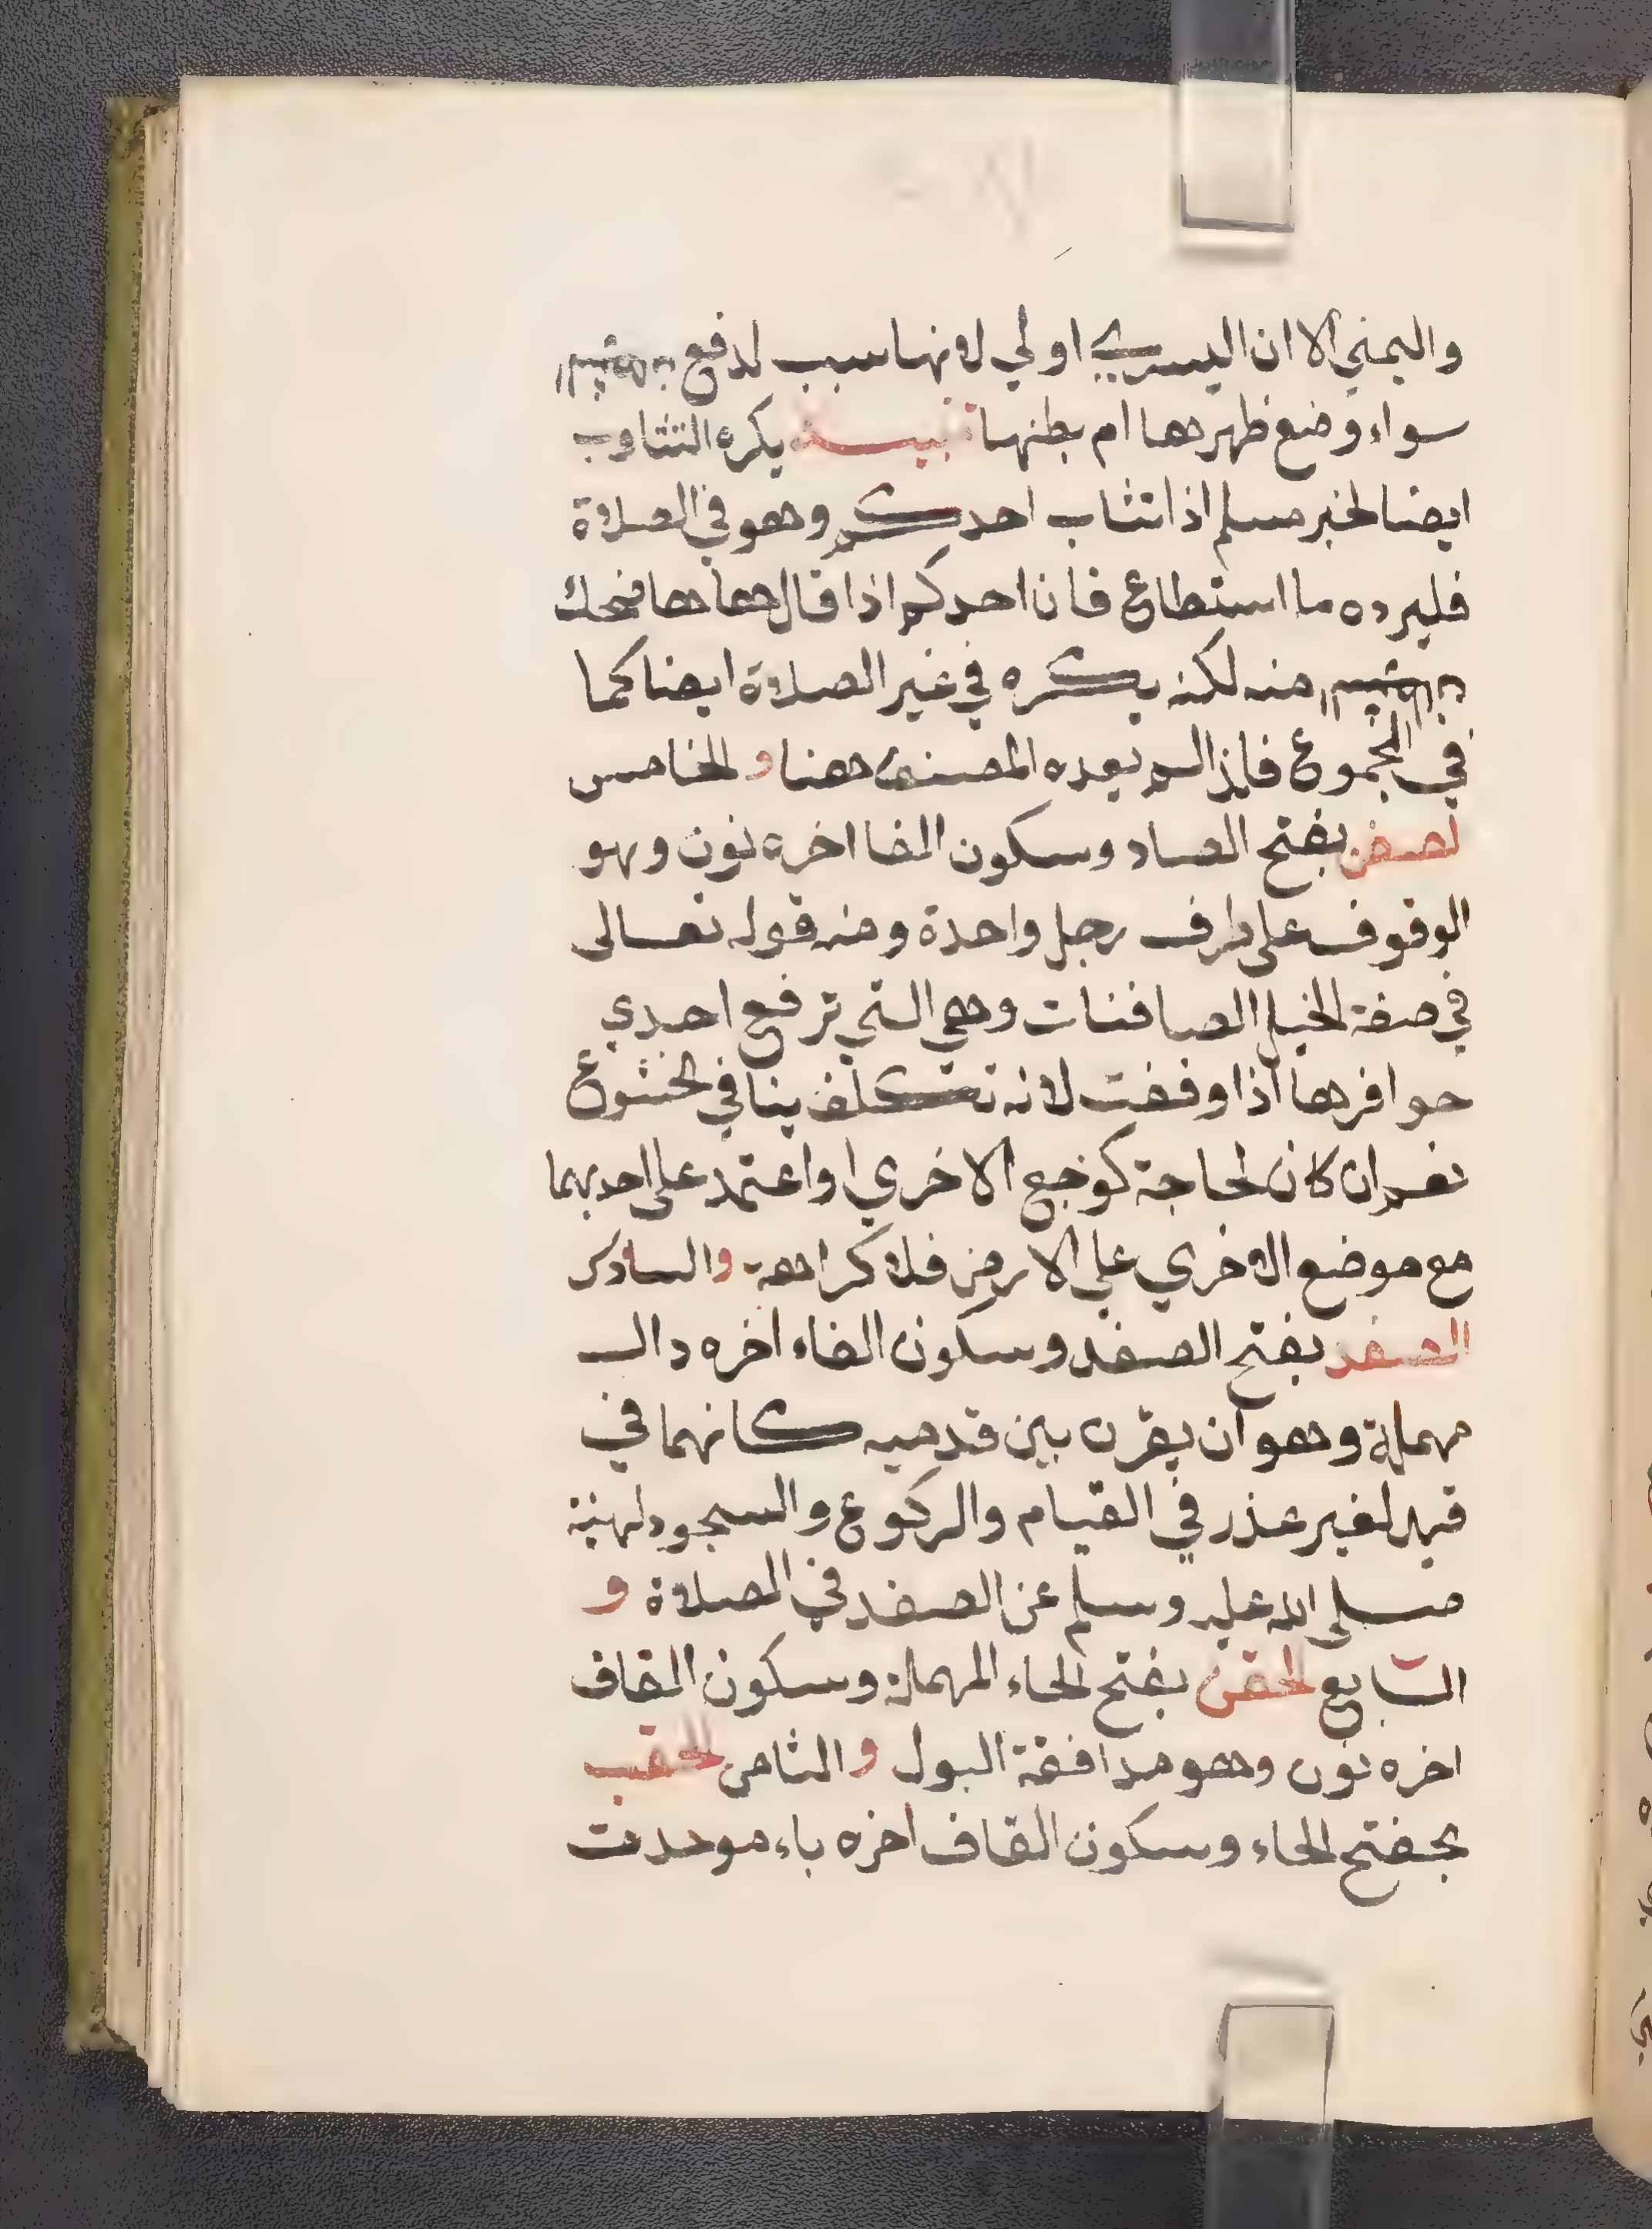 واليمني الا ان اليسري اولي لانها سبب لدفع
سواء وضع ظهرها ام بطنها تنبيه يكره التثاوب
ايضا لخبر مسلم اذا تثاب احدكم وهو في الصلاة
فليرده ما استطاع فان احدكم اذا قال ها ها ضحك
منه لكنه يكره في غير الصلاة ايضا كما
في المجموع فلذا لم يعده المصنف هنا و الخامس
لصفن بفتح الصاد وسكون الفا اخره نون وهو
الوقوف على طرف رجل واحدة ومنه قوله تعالى
في صفة الخيل الصافنات وهي التي ترفع احدي
حوافرها اذا وقفت لانه تكلف ينافي لخشوع
نعم ان كان لحاجة كوجع الاخري او اعتمد على احديهما
مع موضع الاخري علي الارض فلا كراهة والسادس
الصفد بفتح الصفد وسكون الفاء اخره دال
مهملة وهو ان يقرن بين قدميه كانهما في
قيد لغير عذر في القيام والركوع والسجود لهنية
صلى الله عليه وسلم عن الصفد في الصلاة و
السابع لحقن بفتح الحاء المهملة وسكون القاف
اخره نون وهو مدافقة البول والثامن الحقب
بحفتح الحاء وسكون القاف اخره باء موحدت